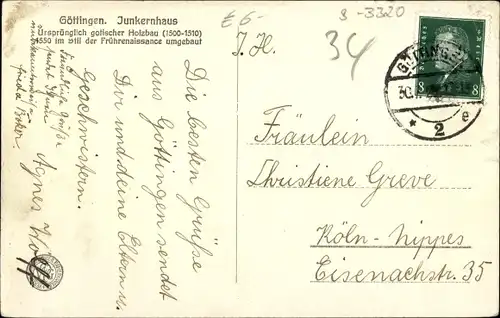 Göttingen. Junkernhaus
Ursprünglich gotischer Holzbau (1500-1510)
1550 im Stil der Frührenaissance umgebaut
£6-
3-3320
34
I. H.
8 8
2 e
Die besten Grüße
aus Göttingen sendet
Dir und deine Eltern u.
Geschwistern.
Agnes Wolff
Freundliche Grüße
Fräulein
Christiene Greve
Köln-Nippes
Eisenachstr. 35